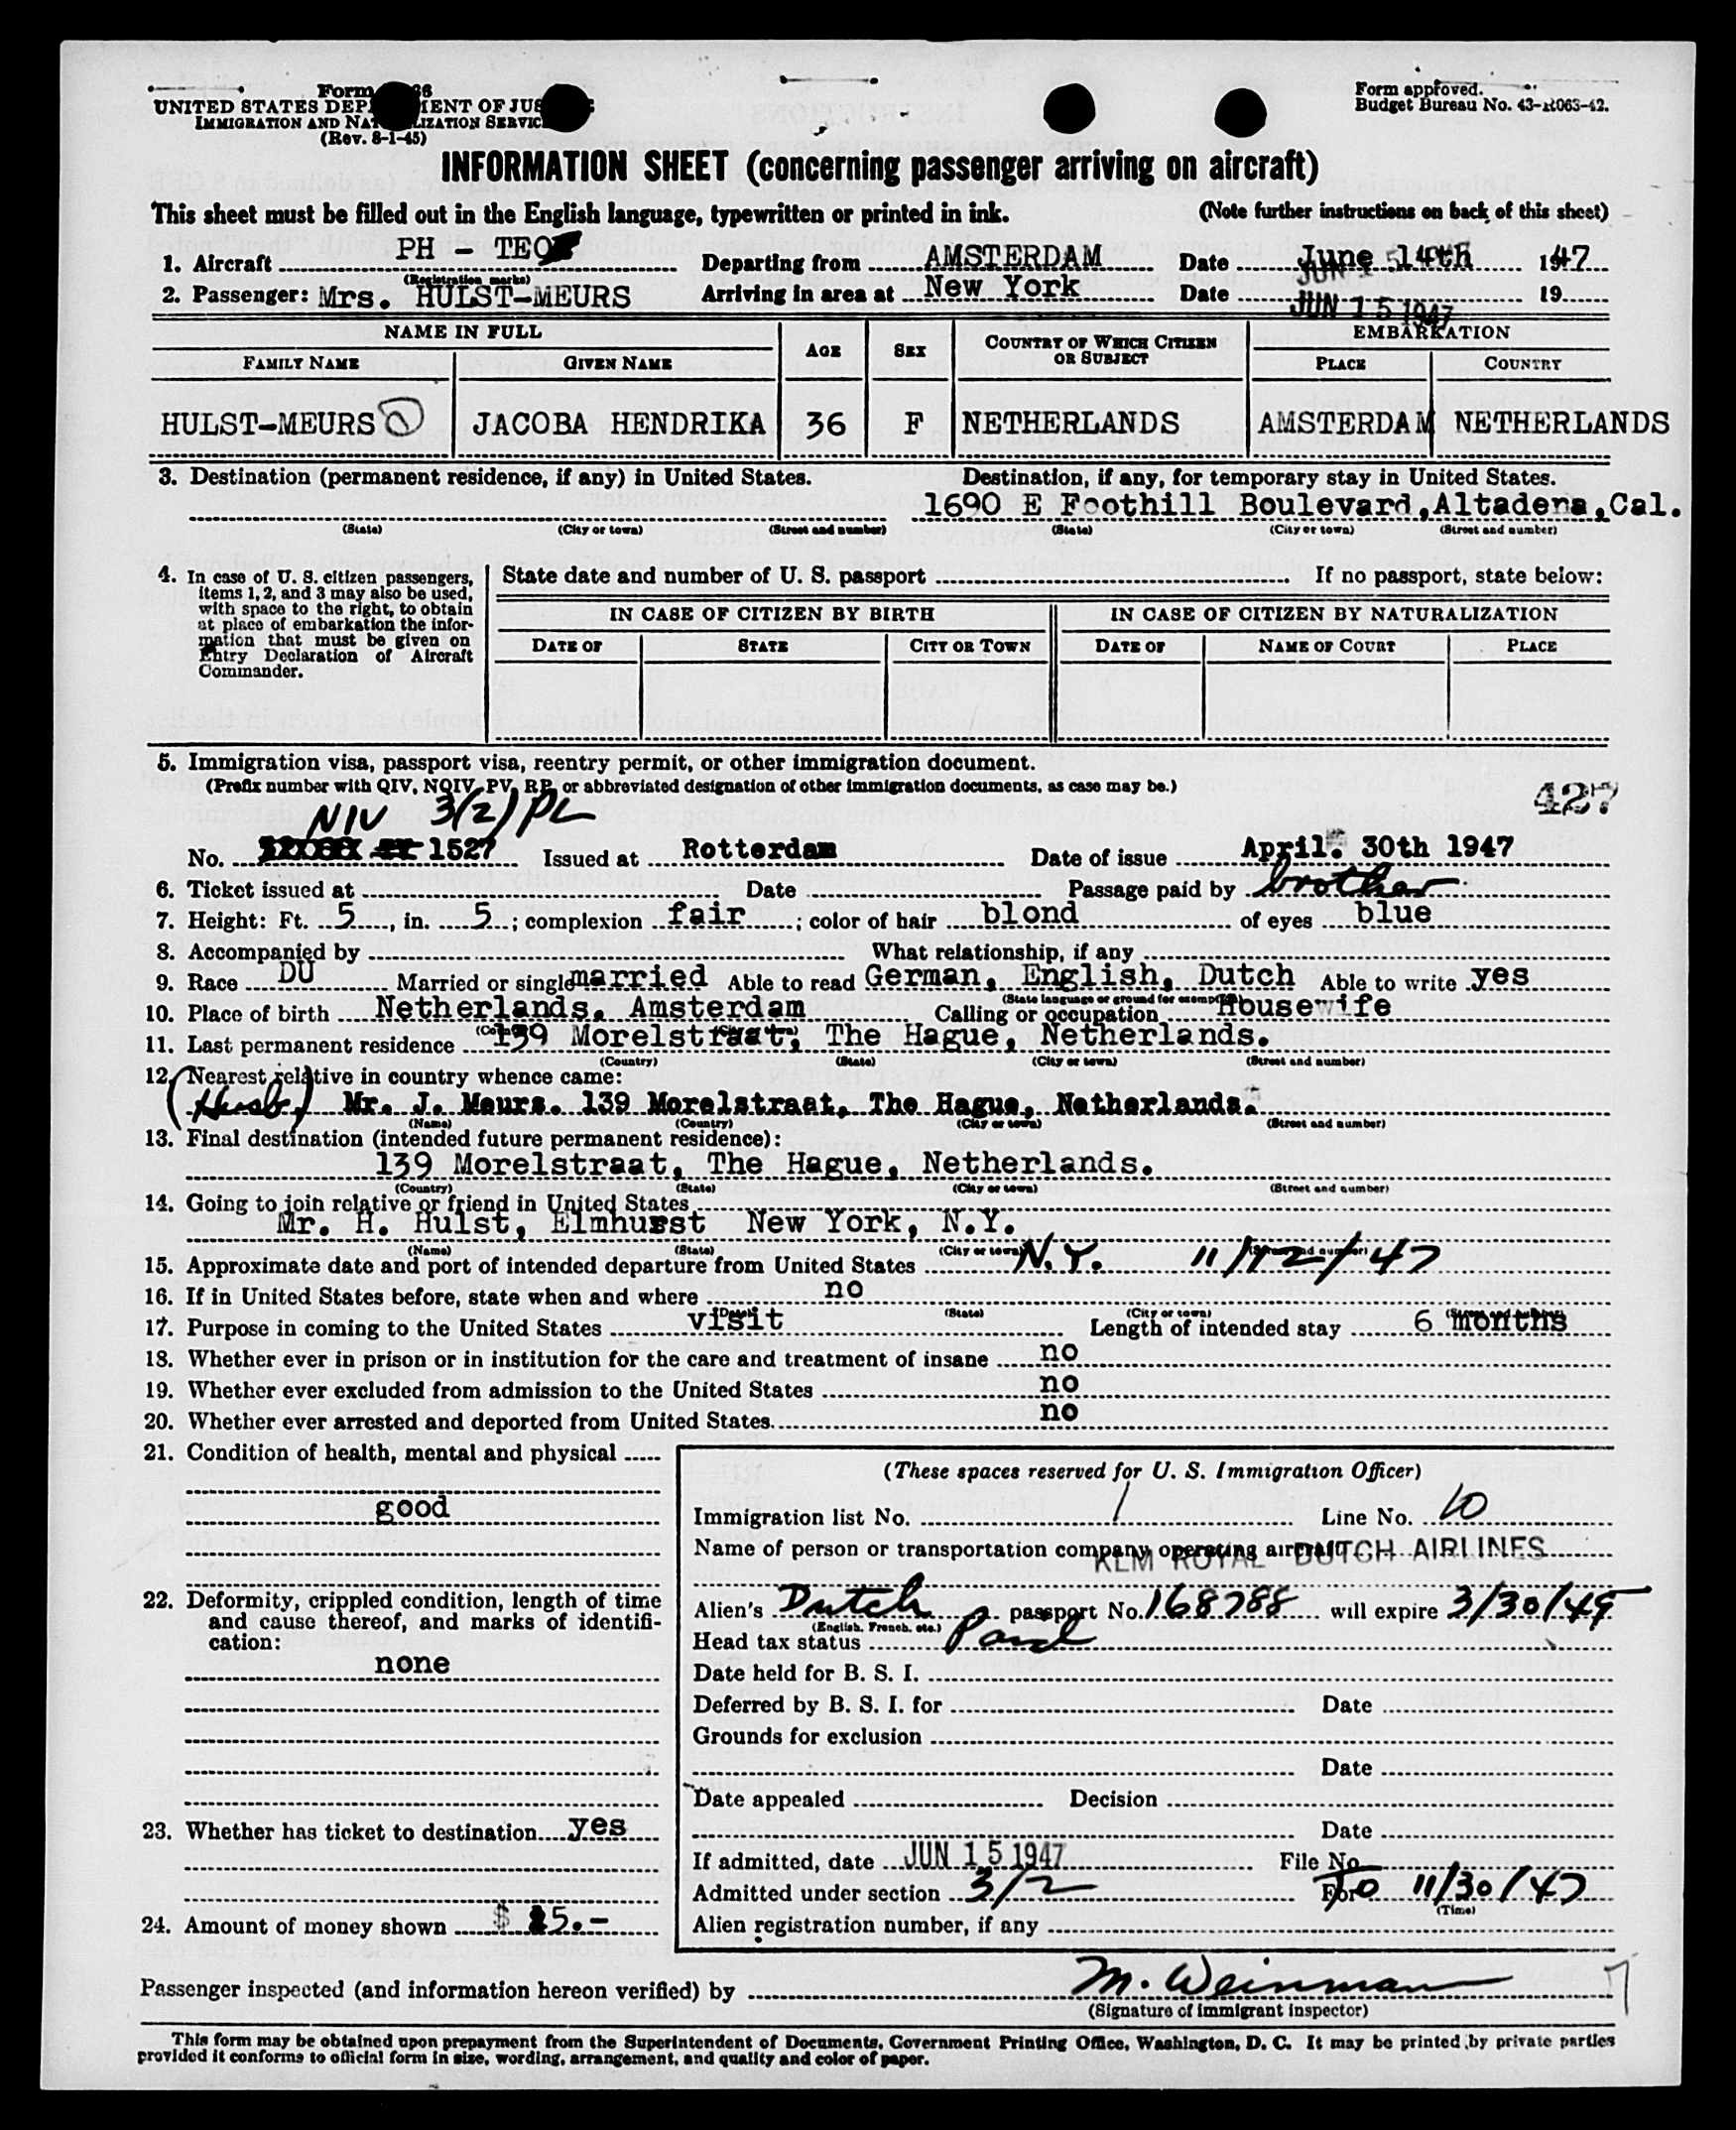 Form
UNITED STATES DEP MENT OF JUS
IMMIGRATION AND NAT LIZATION SERVICE
(Rev. 8-1-45)
Form approved.
Budget Bureau No. 43-R063-42.
INFORMATION SHEET (concerning passenger arriving on aircraft)
This sheet must be filled out in the English language, typewritten or printed in ink. (Note further instructions on back of this sheet)
1. Aircraft PH - TEO Departing from AMSTERDAM Date June 14th 1947
(Registration marks)
2. Passenger: Mrs. HULST-MEURS Arriving in area at New York Date JUN 15 1947 19
NAME IN FULL AGE SEX COUNTRY OF WHICH CITIZEN OR SUBJECT EMBARKATION
FAMILY NAME GIVEN NAME PLACE COUNTRY
HULST-MEURS JACOBA HENDRIKA 36 F NETHERLANDS AMSTERDAM NETHERLANDS
3. Destination (permanent residence, if any) in United States. Destination, if any, for temporary stay in United States.
1690 E Foothill Boulevard, Altadena, Cal.
(State) (City or town) (Street and number) (State) (City or town) (Street and number)
4. In case of U. S. citizen passengers, items 1, 2, and 3 may also be used, with space to the right, to obtain at place of embarkation the information that must be given on Entry Declaration of Aircraft Commander.
State date and number of U. S. passport If no passport, state below:
IN CASE OF CITIZEN BY BIRTH IN CASE OF CITIZEN BY NATURALIZATION
DATE OF STATE CITY OR TOWN DATE OF NAME OF COURT PLACE
5. Immigration visa, passport visa, reentry permit, or other immigration document.
(Prefix number with QIV, NQIV, PV, RP, or abbreviated designation of other immigration documents, as case may be.)
427
NIV 3(2) PL
No. 1527 Issued at Rotterdam Date of issue April. 30th 1947
6. Ticket issued at Date Passage paid by brother
7. Height: Ft. 5, in. 5; complexion fair; color of hair blond of eyes blue
8. Accompanied by What relationship, if any
9. Race DU Married or single married Able to read German, English, Dutch Able to write yes
(State language or ground for exemption)
10. Place of birth Netherlands, Amsterdam Calling or occupation Housewife
11. Last permanent residence 139 Morelstraat, The Hague, Netherlands.
(Country) (State) (City or town) (Street and number)
12. Nearest relative in country whence came:
(Husb) Mr. J. Meurs. 139 Morelstraat, The Hague, Netherlands.
(Name) (Country) (City or town) (Street and number)
13. Final destination (intended future permanent residence):
139 Morelstraat, The Hague, Netherlands.
(Country) (State) (City or town) (Street and number)
14. Going to join relative or friend in United States
Mr. H. Hulst, Elmhurst New York, N.Y.
(Name) (State) (City or town) (Street and number)
15. Approximate date and port of intended departure from United States N.Y. 11/12/47
16. If in United States before, state when and where no
(Dates) (State) (City or town) (Street and number)
17. Purpose in coming to the United States visit Length of intended stay 6 months
18. Whether ever in prison or in institution for the care and treatment of insane no
19. Whether ever excluded from admission to the United States no
20. Whether ever arrested and deported from United States. no
21. Condition of health, mental and physical
good
22. Deformity, crippled condition, length of time and cause thereof, and marks of identification:
none
23. Whether has ticket to destination yes
24. Amount of money shown $ 25.-
(These spaces reserved for U. S. Immigration Officer)
Immigration list No. 1 Line No. 10
Name of person or transportation company operating aircraft KLM ROYAL DUTCH AIRLINES
Alien's Dutch passport No. 168788 will expire 3/30/49
(English, French, etc.)
Head tax status Paid
Date held for B. S. I.
Deferred by B. S. I. for Date
Grounds for exclusion
Date
Date appealed Decision
Date
If admitted, date JUN 15 1947 File No.
Admitted under section 3/2 For To 11/30/47
(Time)
Alien registration number, if any
Passenger inspected (and information hereon verified) by M. Weinman
(Signature of immigrant inspector)
This form may be obtained upon prepayment from the Superintendent of Documents, Government Printing Office, Washington, D. C. It may be printed by private parties
provided it conforms to official form in size, wording, arrangement, and quality and color of paper.